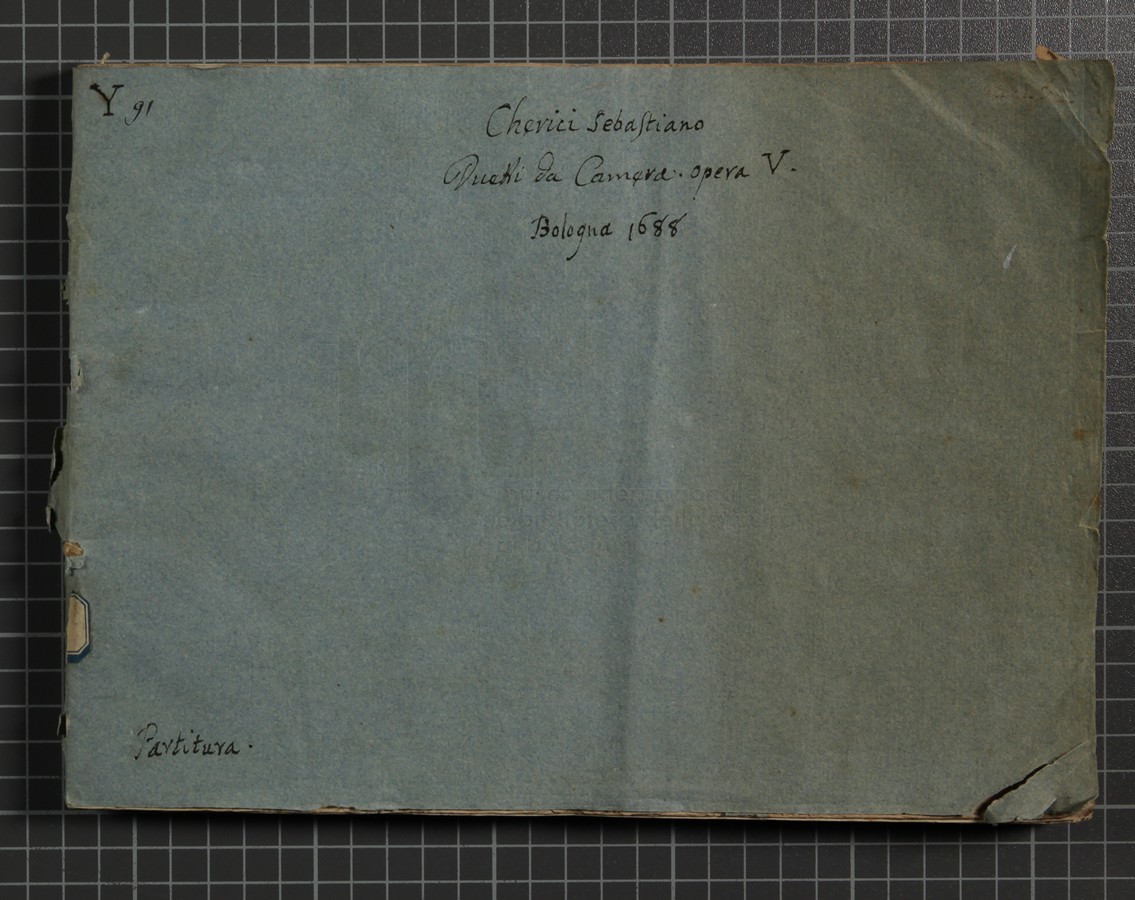 Y 91
Cherici Sebastiano
Duetti da Camera. opera V.
Bologna 1688
Partitura.